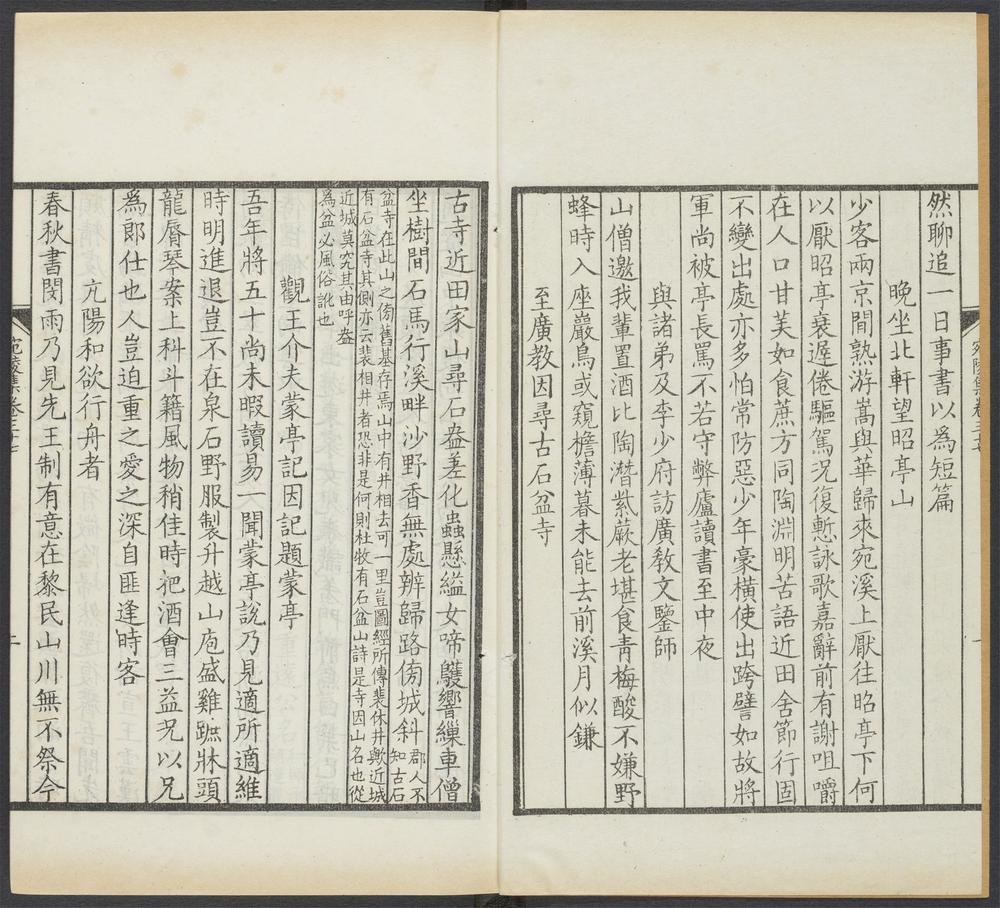 然聊追一日事書以爲短篇
晚坐北軒望昭亭山
少客兩京間熟游嵩與華歸來宛溪上厭往昭亭下何
以厭昭亭衰遲倦驅駕況復慙詠歌嘉辭前有謝咀嚼
在人口甘芙如食蔗方同陶淵明苦語近田舍節行固
不變出處亦多怕常防惡少年豪橫使出跨譬如故將
軍尚被亭長罵不若守弊廬讀書至中夜
與諸弟及李少府訪廣教文鑒師
山僧邀我輩置酒比陶潛紫蕨老堪食青梅酸不嫌野
蜂時入座巖鳥或窺檐薄暮未能去前溪月似鐮
至廣教因尋古石盆寺
古寺近田家山尋石盎差化蟲懸縊女啼鸎響繅車僧
坐樹間石馬行溪畔沙野香無處辨歸路傍城斜郡人不知古石
盆寺在此山之傍舊基存焉山中有井相去可一里豈圖經所傳裴休井歟近城
有石盆寺其側亦云裴相井者恐非是何則杜牧有石盆山詩是寺因山名也從
近城莫究其由呼盎
爲盆必風俗訛也
觀王介夫蒙亭記因記題蒙亭
吾年將五十尚未暇讀易一聞蒙亭說乃見適所適維
時明進退豈不在泉石野服製升越山庖盛雞蹠牀頭
龍脣琴案上科斗籍風物稍佳時把酒會三益況以兄
爲郎仕也人豈迫重之愛之深自匪逢時客
亢陽和欲行舟者
春秋書閔雨乃見先王制有意在黎民山川無不祭今
宛陵集卷三十七
二